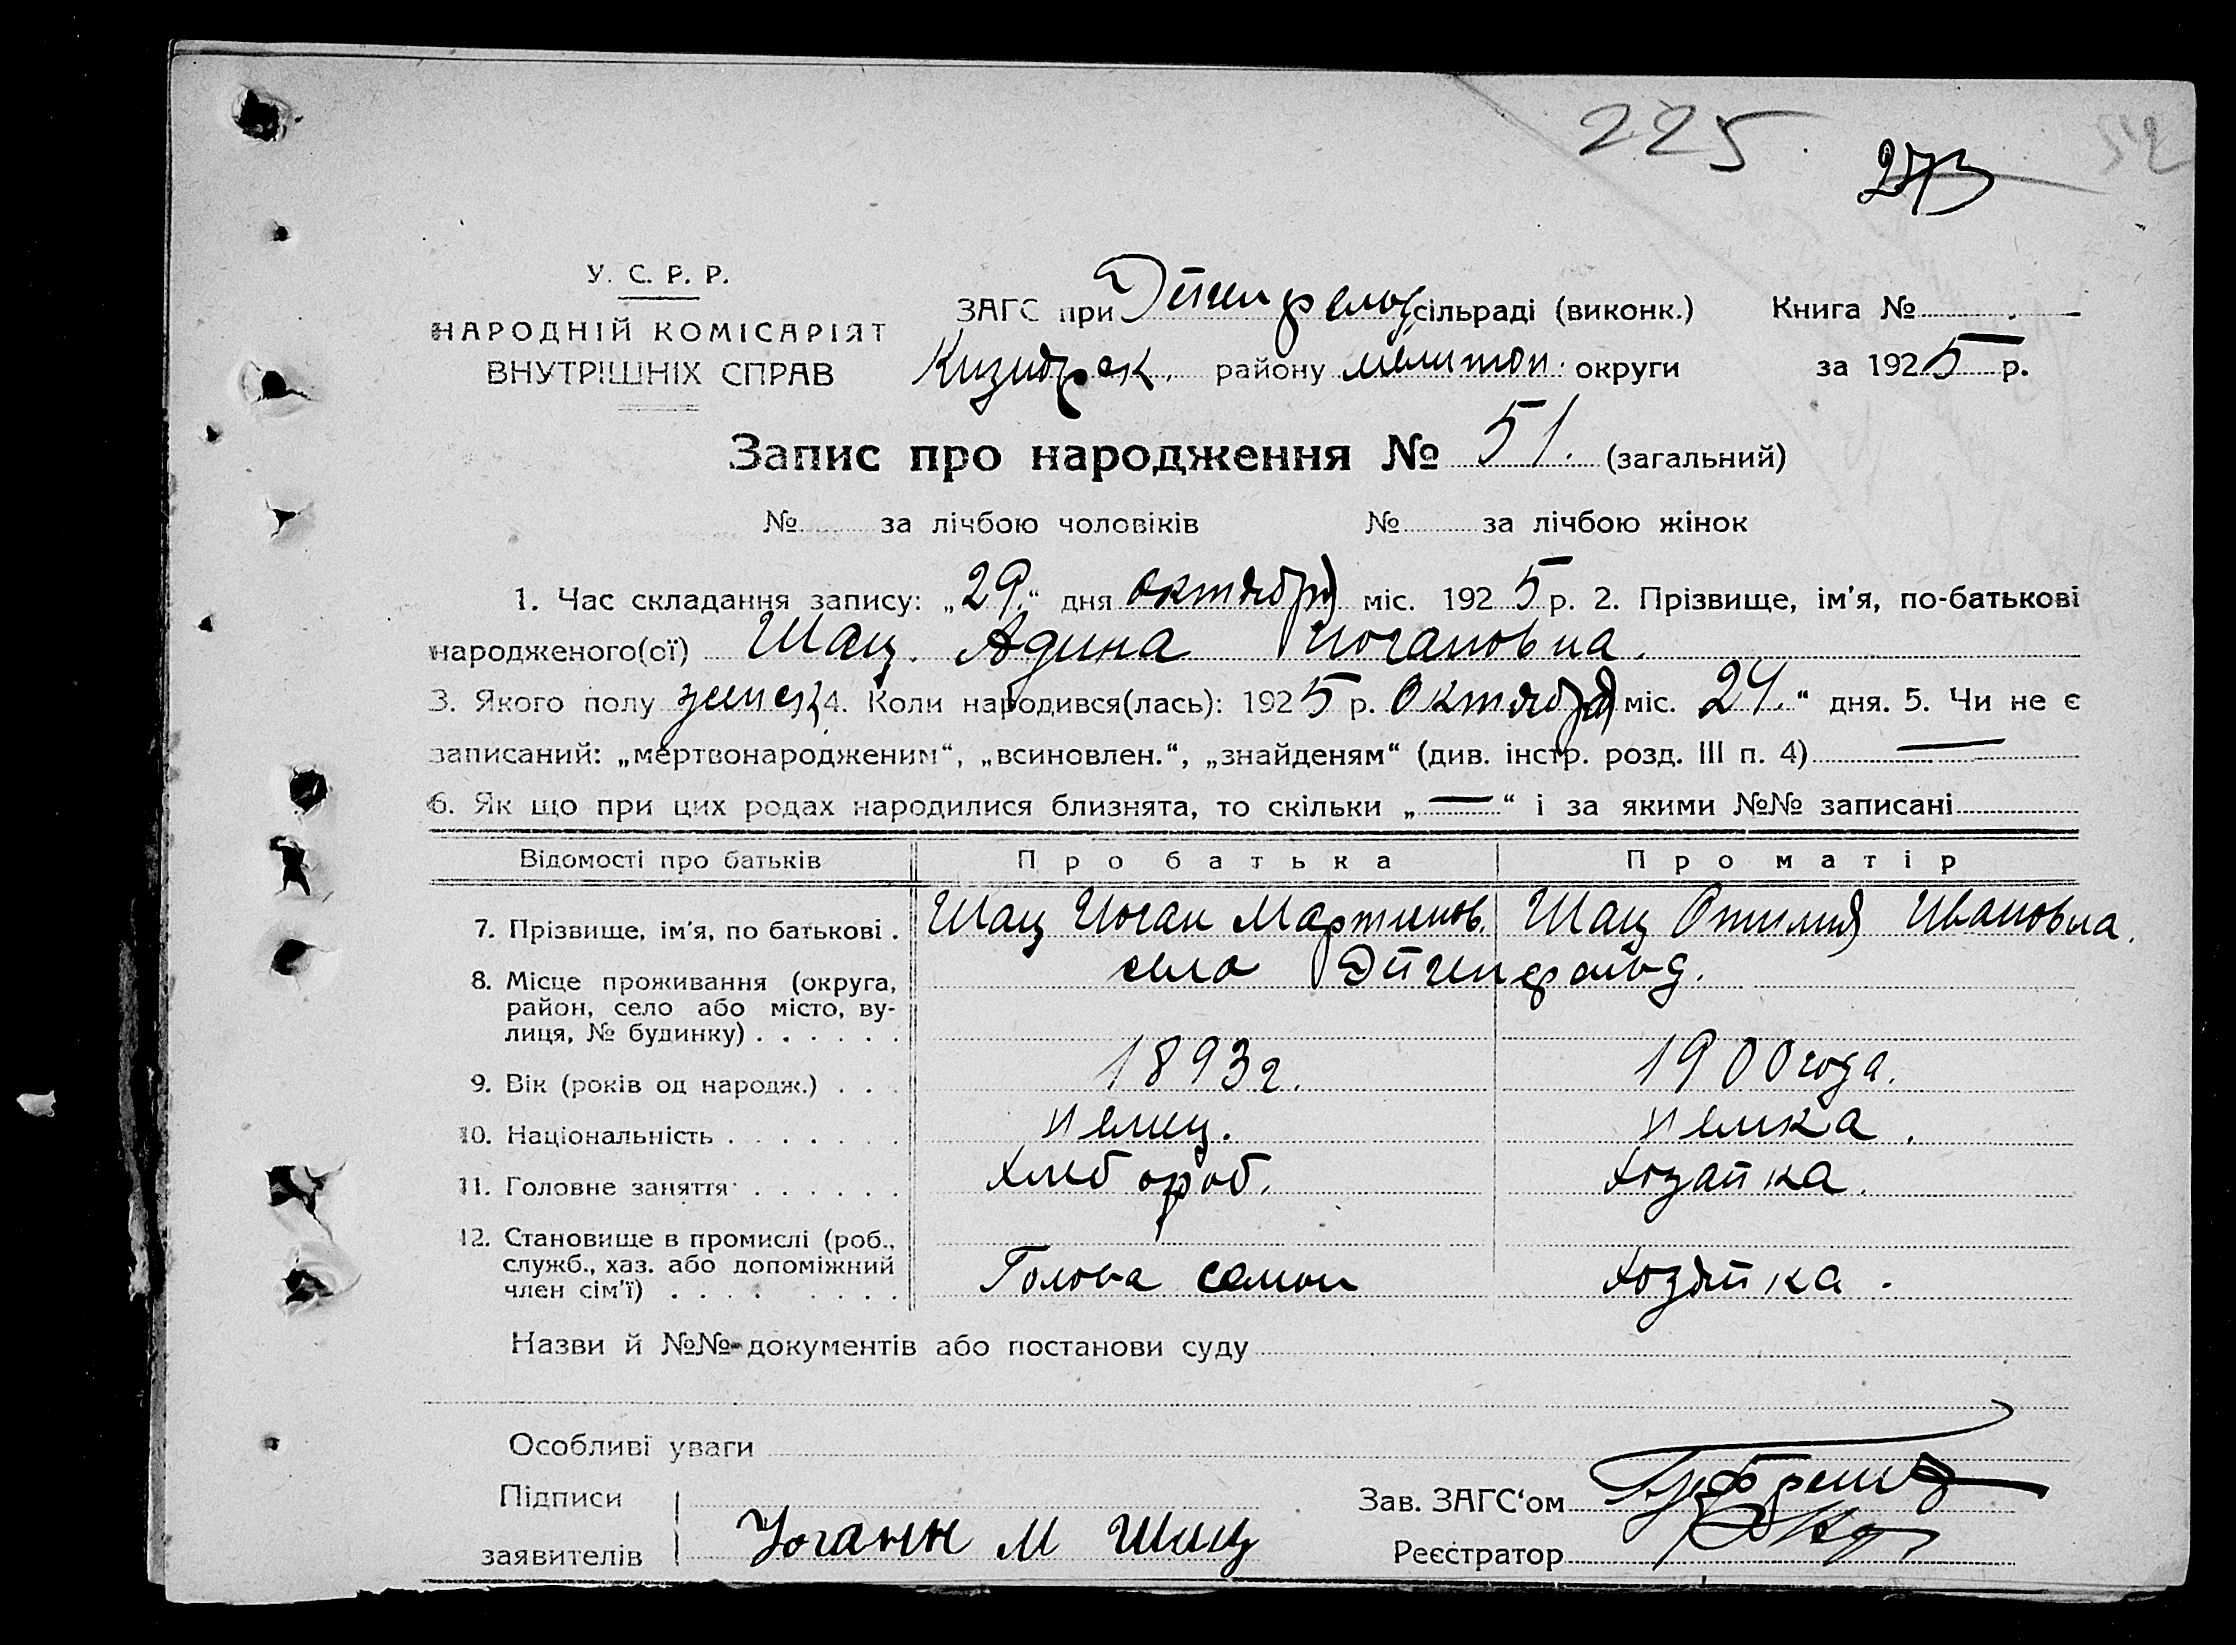 225
273
52
У. С. Р. Р.
НАРОДНІЙ КОМІСАРІЯТ
ВНУТРІШНІХ СПРАВ
ЗАГС при Эйгенфельд сільраді (виконк.) Книга №
району мелитоп. округи за 1925 р.
Запис про народження № 51. (загальний)
№ за лічбою чоловіків № за лічбою жінок
1. Час складання запису: „29.“ дня октября міс. 1925 р. 2. Прізвище, ім'я, по-батькові
народженого(ої) Шац. Адина Иогановна.
3. Якого полу женск 4. Коли народився(лась): 1925 р. Октября міс. 24.“ дня. 5. Чи не є
записаний: „мертвонародженим“, „всиновлен.“, „знайденям“ (див. інстр. розд. III п. 4) —
6. Як що при цих родах народилися близнята, то скільки „—“ і за якими №№ записані
Відомості про батьків Про батька Про матір
7. Прізвище, ім'я, по батькові . Шац Иоган Мартинов. Шац Отилия Ивановна.
8. Місце проживання (округа, село Эйгенфельд.
район, село або місто, ву-
лиця, № будинку) . . . . . .
9. Вік (років од народж.) . . . 1893 г. 1900 года.
10. Національність . . . . . . . немец. немка.
11. Головне заняття . . . . . . Хлебороб. Хозайка.
12. Становище в промислі (роб.,
служб., хаз. або допоміжний
член сім'ї) . . . . . . . . Голова семьи Хозяйка.
Назви й №№ документів або постанови суду
Особливі уваги
Підписи
Зав. ЗАГС'ом
заявителів Иоганн М Шац
Реєстратор